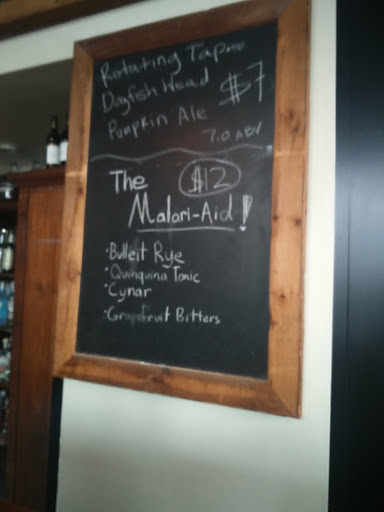 Rotating Tap
Dogfish Head
$7
Pumpkin Ale
7.0 ABV
The $12
Malari-Aid!
·Bulleit Rye
·Quinquina Tonic
·Cynar
·Grapefruit Bitters